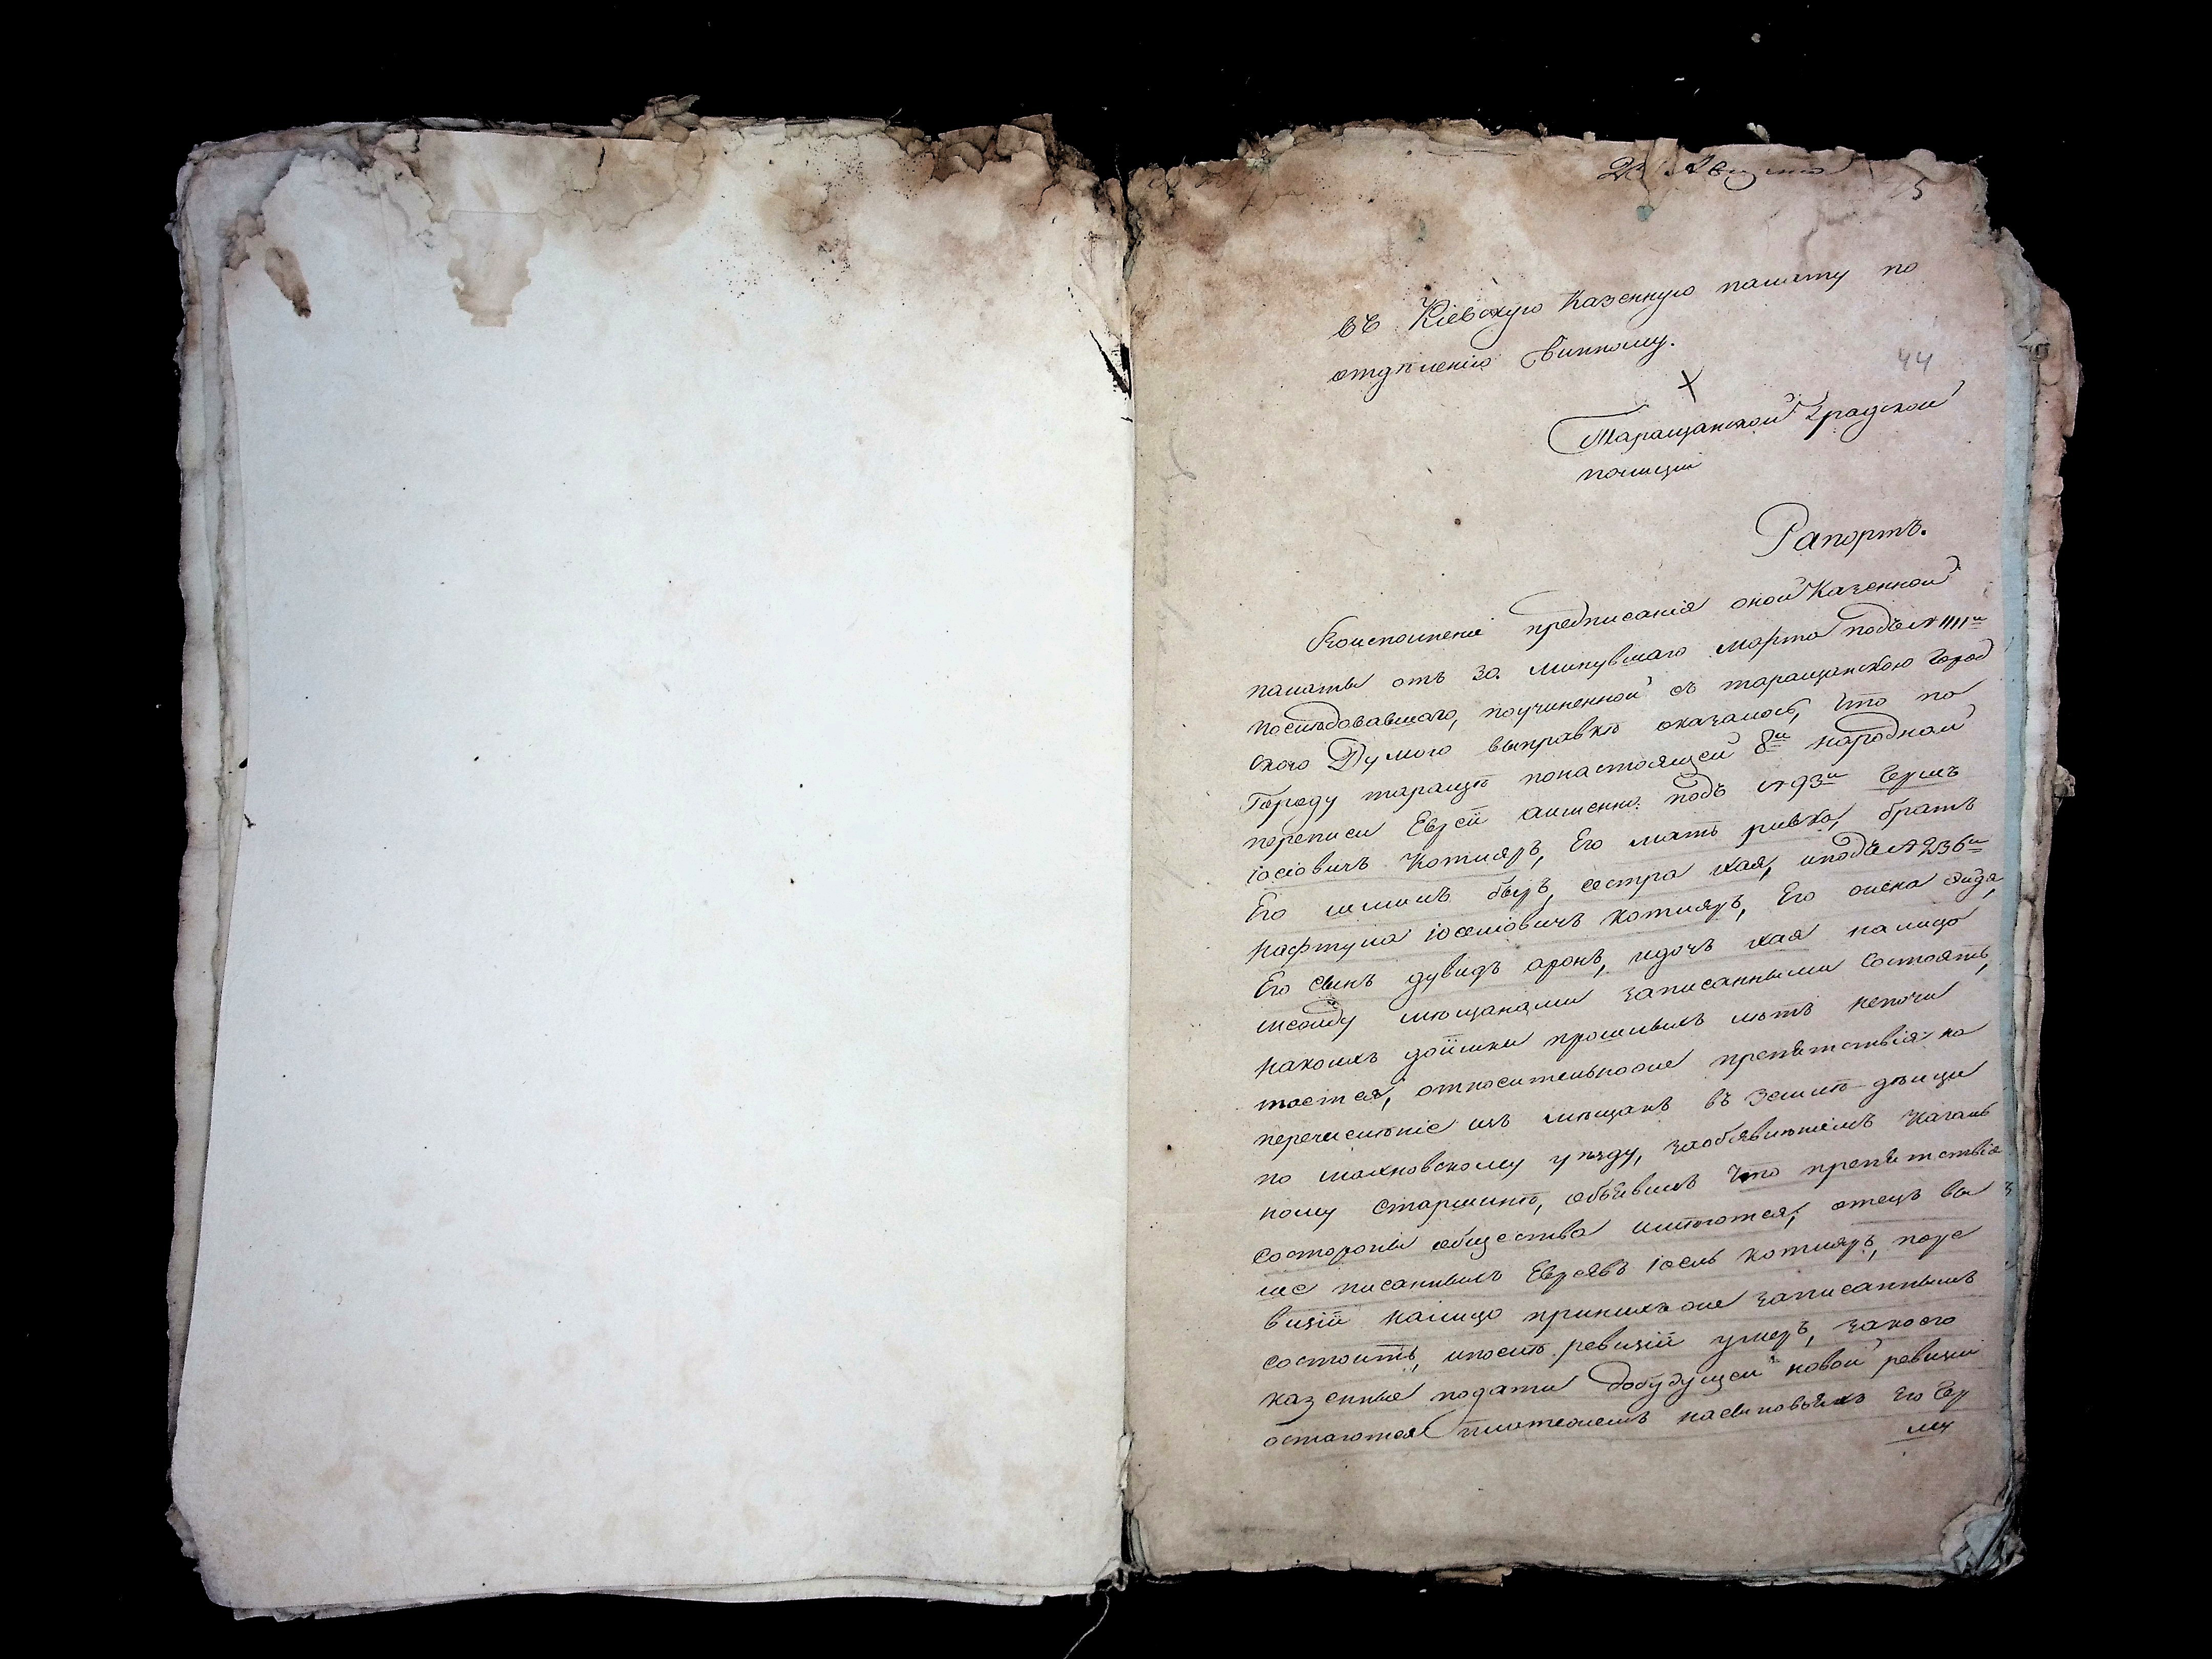 23 Августа
75
въ Кіевскую Казенную палату по
отдѣленію Винному.
44
Таращанской Градской
полиции
Рапортъ.
Воисполненіе предписанія оной Казенной
палаты отъ 30. минувшаго марта подъ № 1111м
послѣдовавшаго, поучиненной съ таращанскою Город
скою Думою выправкѣ оказалось, что по
Городу таращѣ понастоящей 8й народной
переписи Евреи подъ № 93м Герш
Іосіовичъ Котляръ, Его мать ривка, братъ
Его шлиома беръ, сестра хая, иподъ № 236м
нафтула Іосіовичъ котляръ, Его жена
Его сынъ дувидъ аронъ, идочъ хая налицо
между мѣщанами записанными состоятъ,
накоихъ прошлыхъ лѣтъ непочи
тается, относительноже препятствія на
перечисленіе изъ мѣщанъ въ Земледѣльци
по махновскому уѣзду, заобявленіемъ Кагаль
ному старшинѣ, объявилъ что препятствія
состороны общества имѣются, отецъ вы
ше писанныхъ Евреявъ Іосль котляръ, поре
визіи налицо принихъже записаннымъ
состоитъ, ипослѣ ревизіи умеръ, закоего
казенные подати добудущей новой ревизіи
остаются платежемъ насыновьяхъ его Гер
шу